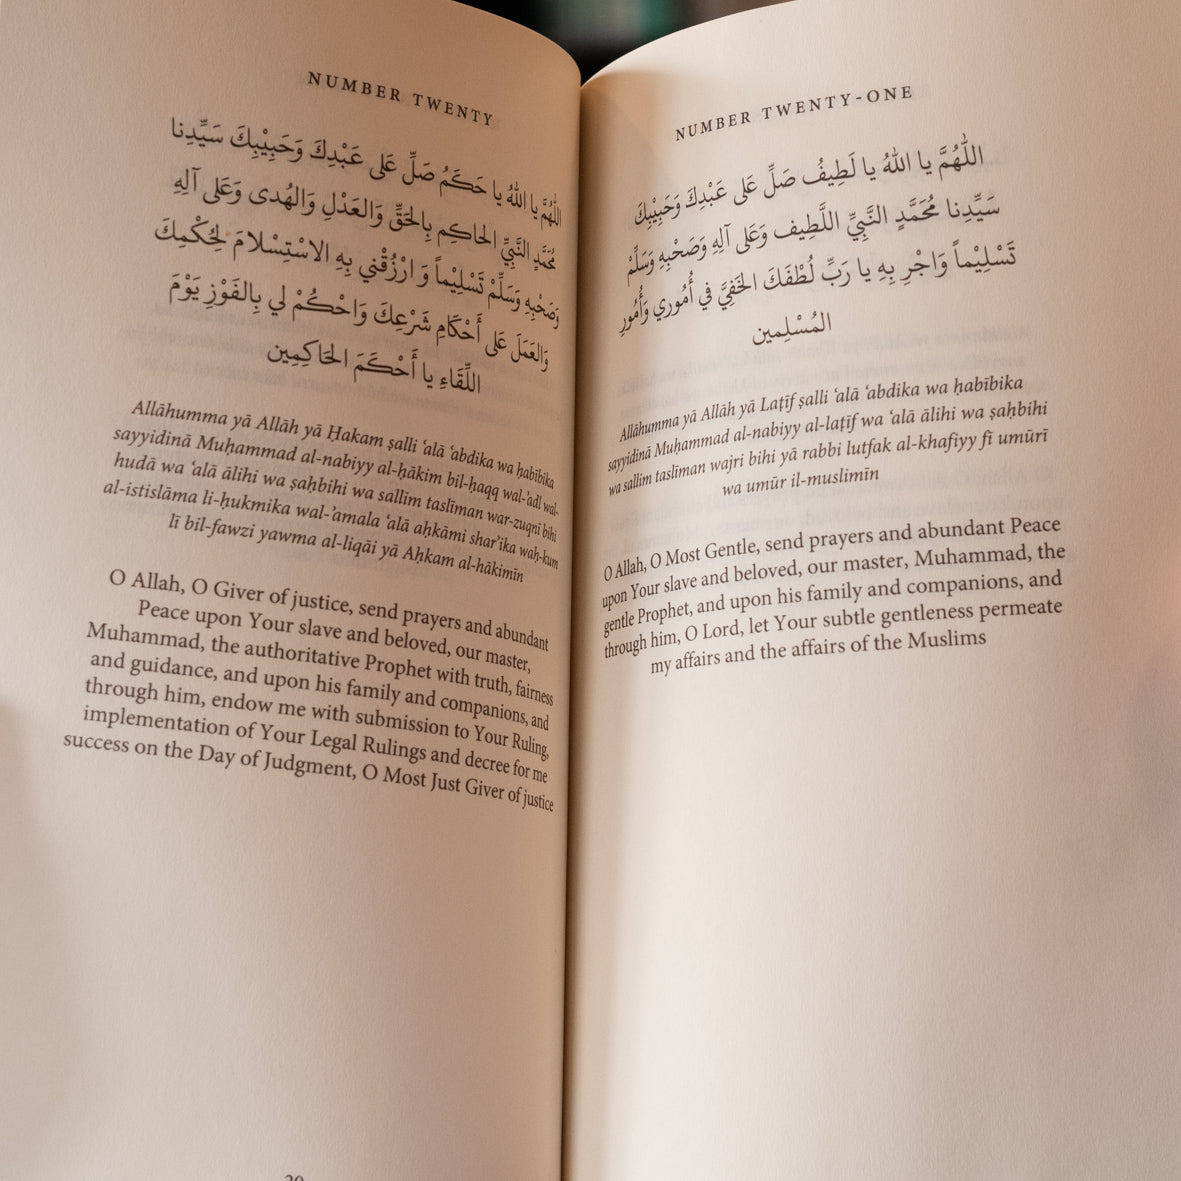 NUMBER TWENTY
اللّٰهُمَّ يا اللهُ يا حَكَمُ صَلِّ عَلى عَبْدِكَ وَحَبِيْبِكَ سَيِّدِنا
مُحَمَّدٍ النَّبِيِّ الحاكِم بِالحَقِّ وَالعَدْلِ وَالهُدى وَعَلى آلِهِ
وَصَحْبِهِ وَسَلِّمْ تَسْلِيْماً وَ ارْزُقْني بِهِ الاسْتِسْلامَ لِحُكْمِكَ
وَالعَمَلَ عَلى أَحْكامِ شَرْعِكَ وَاحْكُمْ لي بِالفَوْزِ يَوْمَ
اللِّقَاءِ يا أَحْكَمَ الحَاكِمِين
Allāhumma yā Allāh yā Ḥakam ṣalli ʿalā ʿabdika wa ḥabībika
sayyidinā Muḥammad al-nabiyy al-ḥākim bil-ḥaqq wal-ʾadl wal-
hudā wa ʿalā ālihi wa ṣaḥbihi wa sallim taslīman war-zuqnī bihi
al-istislāma li-ḥukmika wal-ʾamala ʿalā aḥkāmi sharʾika waḥ-kum
lī bil-fawzi yawma al-liqāi yā Aḥkam al-ḥākimīn
O Allah, O Giver of justice, send prayers and abundant
Peace upon Your slave and beloved, our master,
Muhammad, the authoritative Prophet with truth, fairness
and guidance, and upon his family and companions, and
through him, endow me with submission to Your Ruling,
implementation of Your Legal Rulings and decree for me
success on the Day of Judgment, O Most Just Giver of justice
NUMBER TWENTY-ONE
اللّٰهُمَّ يا اللهُ يا لَطِيفُ صَلِّ عَلى عَبْدِكَ وَحَبِيْبِكَ
سَيِّدِنا مُحَمَّدٍ النَّبِيِّ اللَّطِيف وَعَلى آلِهِ وَصَحْبِهِ وَسَلِّمْ
تَسْلِيْماً وَاجْرِ بِهِ يا رَبِّ لُطْفَكَ الخَفِيَّ في أُمُوري وَأُمُورِ
المُسْلِمين
Allāhumma yā Allāh yā Laṭīf ṣalli ʿalā ʿabdika wa ḥabībika
sayyidinā Muḥammad al-nabiyy al-laṭīf wa ʿalā ālihi wa ṣaḥbihi
wa sallim taslīman wajri bihi yā rabbi lutfak al-khafiyy fī umūrī
wa umūr il-muslimīn
O Allah, O Most Gentle, send prayers and abundant Peace
upon Your slave and beloved, our master, Muhammad, the
gentle Prophet, and upon his family and companions, and
through him, O Lord, let Your subtle gentleness permeate
my affairs and the affairs of the Muslims